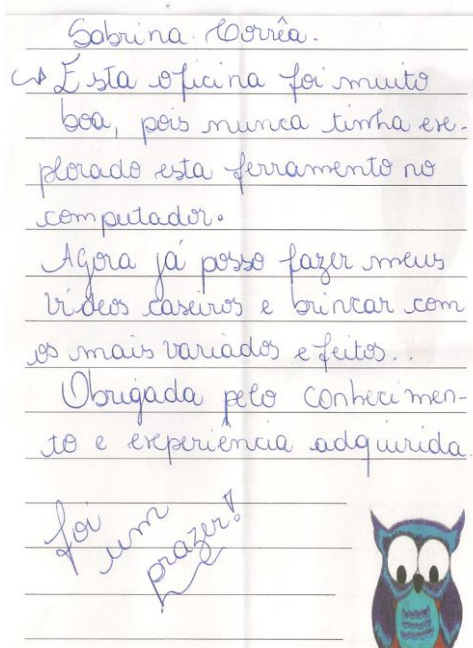 Sabrina Corrêa.
↳ Esta oficina foi muito
boa, pois nunca tinha ex-
plorado esta ferramento no
computador.
Agora já posso fazer meus
vídeos caseiros e brincar com
os mais variados efeitos..
Obrigada pelo conhecimen-
to e experiência adquirida.
foi
um
prazer!